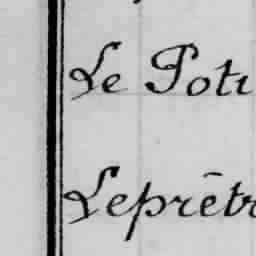 Le Poti
Leprêtr